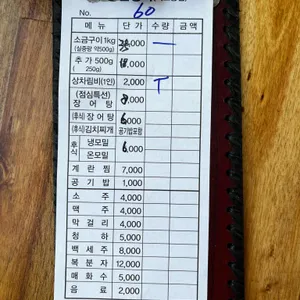 No. 60
메 뉴 단 가 수 량 금 액
소금구이 1kg ,000 一
(실중량 약500g)
추 가 500g ,000
( 250g)
상차림비(1인) 2,000 T
(점심특선) ,000
장 어 탕
(후식)장 어 탕 6,000
(후식)김치찌개 공기밥포함
후식 냉모밀 6,000
온모밀
계 란 찜 7,000
공 기 밥 1,000
소 주 4,000
맥 주 4,000
막 걸 리 4,000
청 하 5,000
백 세 주 8,000
복 분 자 12,000
매 화 수 5,000
음 료 2,000